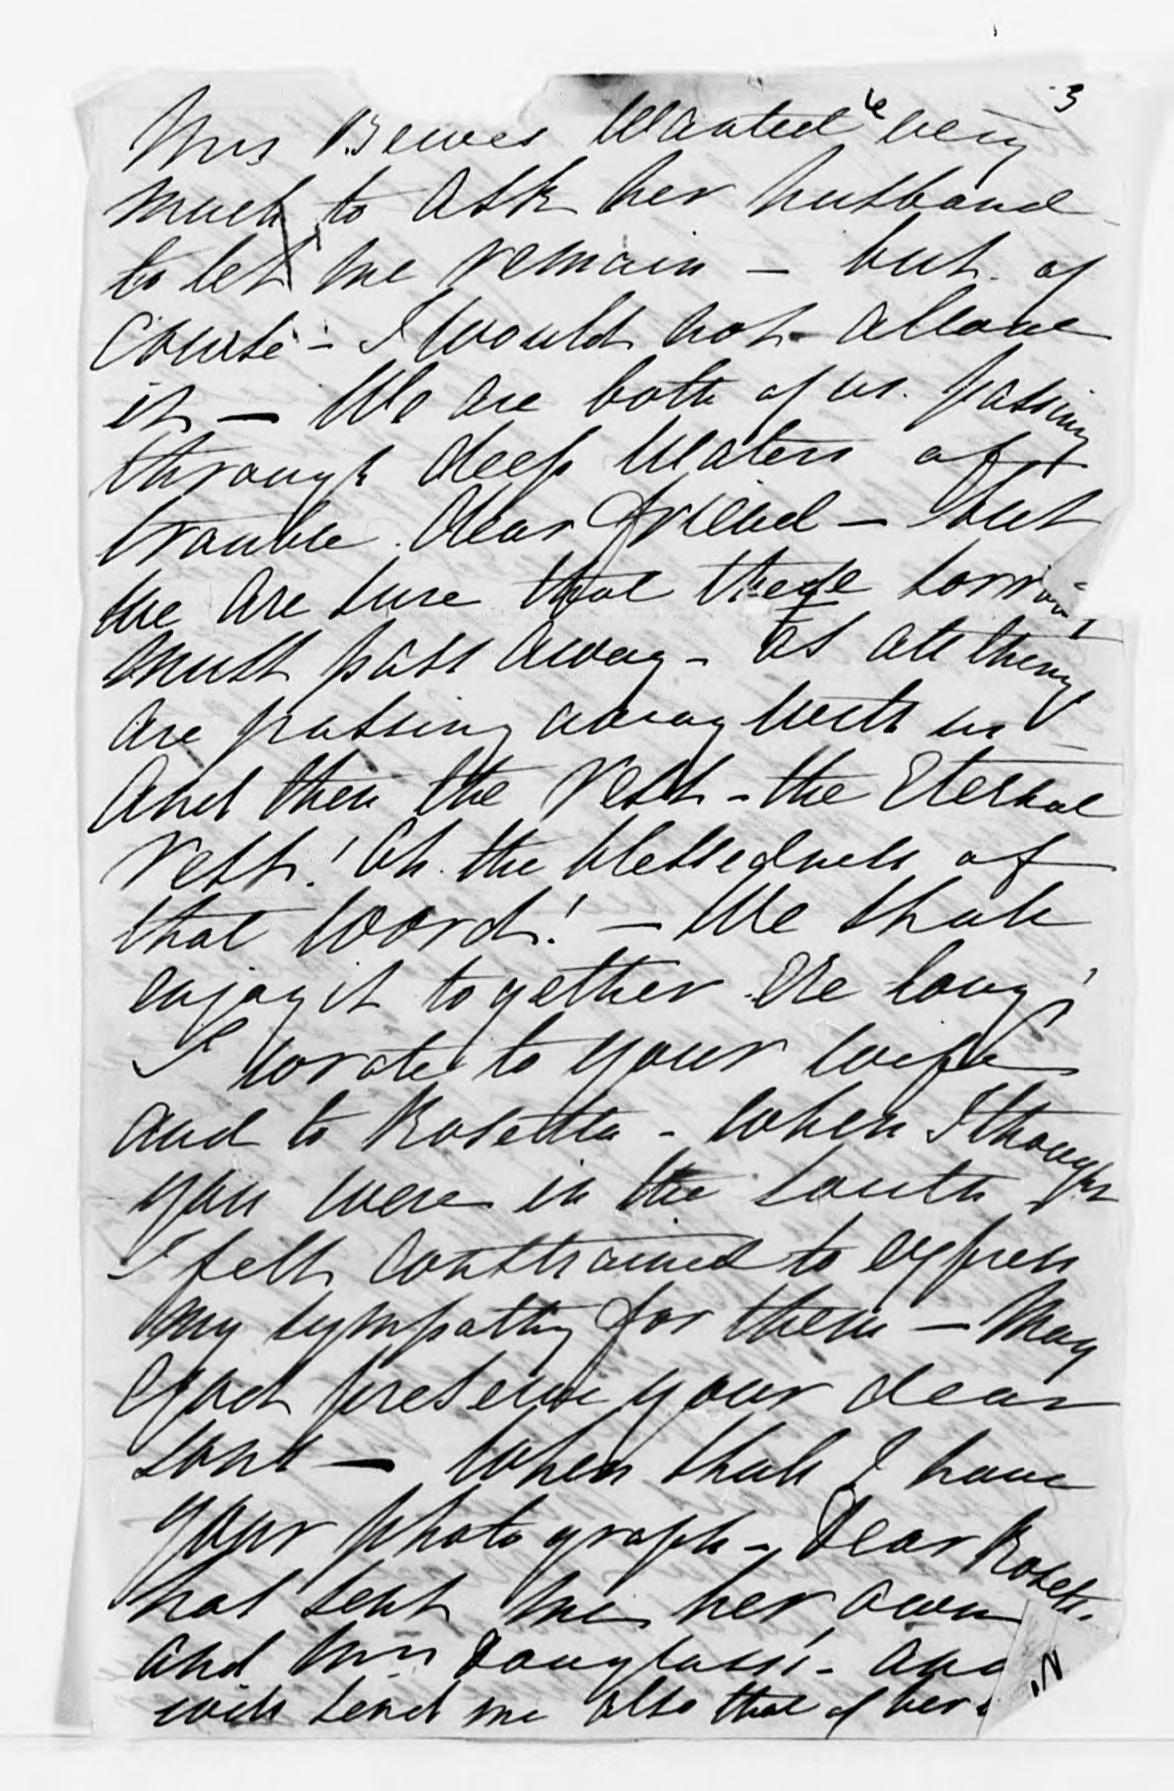 3
Mrs Bewes Wanted very
much to ask her husband
to let me remain – but of
course – I would not allow
it – We are both of us passing
through deep Waters of
trouble dear friend – but
we are sure that these sorrows
must pass away – as all things
are passing away with us –
And then the rest – the Eternal
rest! Oh the blessedness of
that Word! – We shall
enjoy it together Ere long,
I wrote to your wife
and to Rosetta – when I thought
you were in the South
I felt constrained to express
my sympathy for them – May
God preserve your dear
sons – When shall I have
your photograph – Dear Rosetta
has sent me her own
and Mrs Douglass's – and
will send me also that of her